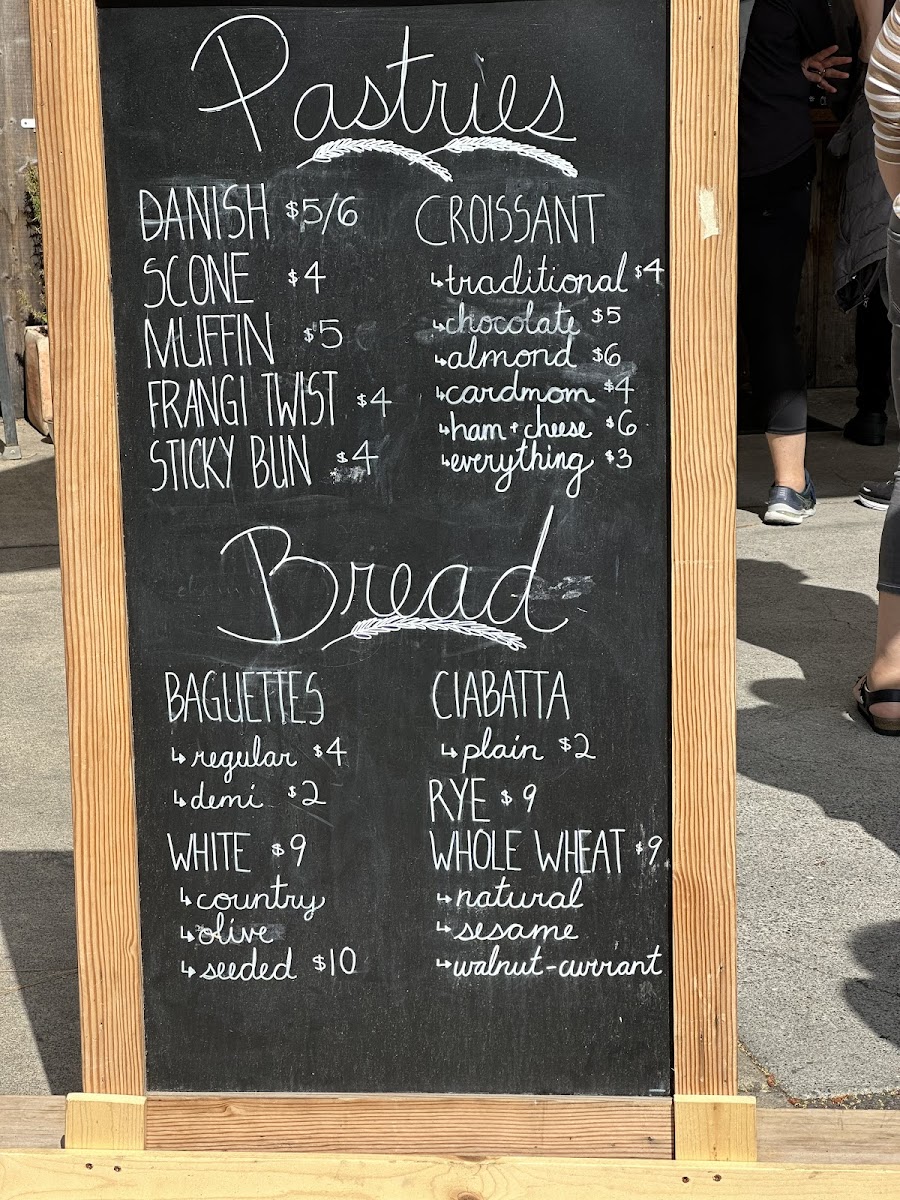 Pastries
DANISH $5/6
SCONE $4
MUFFIN $5
FRANGI TWIST $4
STICKY BUN $4
CROISSANT
↳traditional $4
↳chocolate $5
↳almond $6
↳cardmom $4
↳ham + cheese $6
↳everything $3
Bread
BAGUETTES
↳regular $4
↳demi $2
WHITE $9
↳country
↳olive
↳seeded $10
CIABATTA
↳plain $2
RYE $9
WHOLE WHEAT $9
↳natural
↳sesame
↳walnut-currant